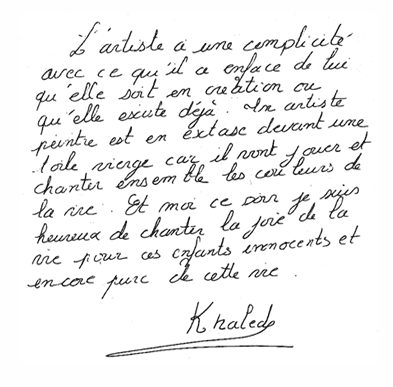 L'artiste a une complicité
avec ce qu'il a enface de lui
qu'elle soit en création ou
qu'elle excute déjà. Un artiste
peintre est en extase devant une
toile vierge car il vont jouer et
chanter ensemble les couleurs de
la vie. Et moi ce soir je suis
heureux de chanter la joie de la
vie pour ces enfants innocents et
encore purc de cette vie.
Khaled